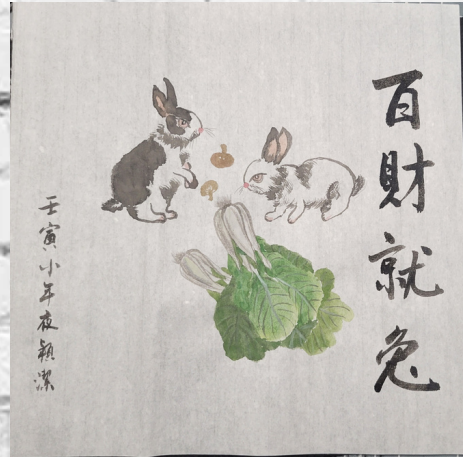 百財就兔
壬寅小年夜穎潔